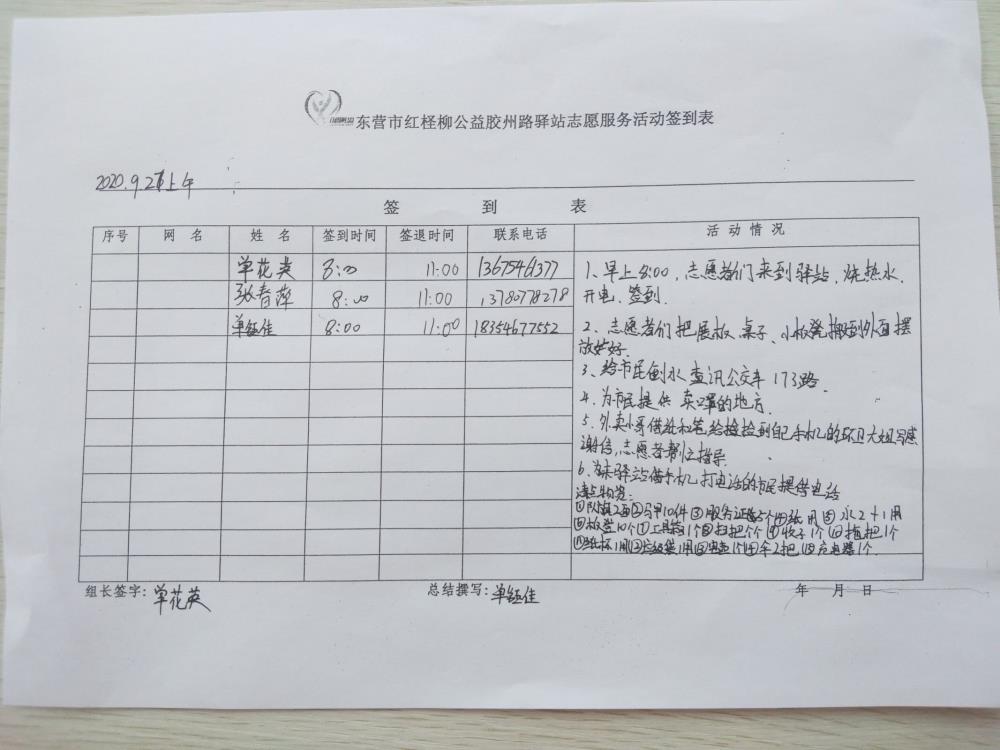 东营市红柽柳公益胶州路驿站志愿服务活动签到表
2020.9.2 上午
签 到 表
序号 网 名 姓 名 签到时间 签退时间 联系电话 活动情况
单花英 8:00 11:00 13675461377
张春萍 8:00 11:00 13780778278
单钰佳 8:00 11:00 18354677552
1、早上8:00,志愿者们来到驿站,烧热水.
开电、签到.
2、志愿者们把展板、桌子、小板凳搬到外面摆
放好.
3、给市民倒水 查讯公交车173路.
4、为市民提供 卖口罩的地方.
5、外卖小哥借纸和笔给捡到自己手机的环卫大姐写感
谢信,志愿者帮忙指导.
6、为来驿站借手机打电话的市民提供电话
清点物资:
①队旗2面②马甲10件③服务证5个④纸1用⑤水2+1用
⑥板凳10个⑦工具箱1个⑧扫把个⑨收子1个⑩拖把1个
纸杯1用 垃圾袋1用 1个 伞2把 充电器1个.
组长签字: 单花英 总结撰写: 单钰佳 年 月 日